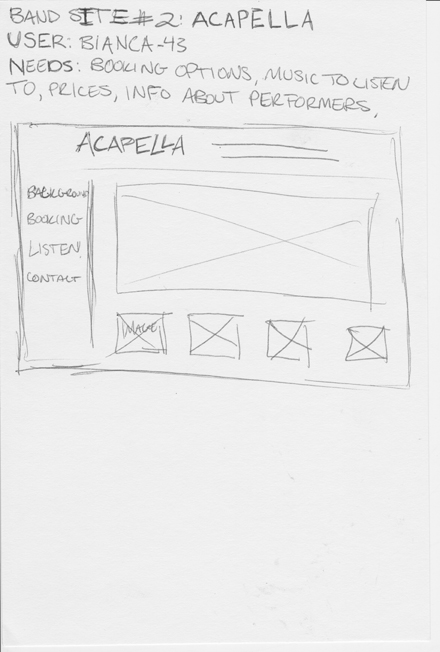 BAND SITE #2: ACAPELLA
USER: BIANCA-43
NEEDS: BOOKING OPTIONS, MUSIC TO LISTEN
TO, PRICES, INFO ABOUT PERFORMERS,
ACAPELLA
BACKGROUND
BOOKING
LISTEN
CONTACT
IMAGE